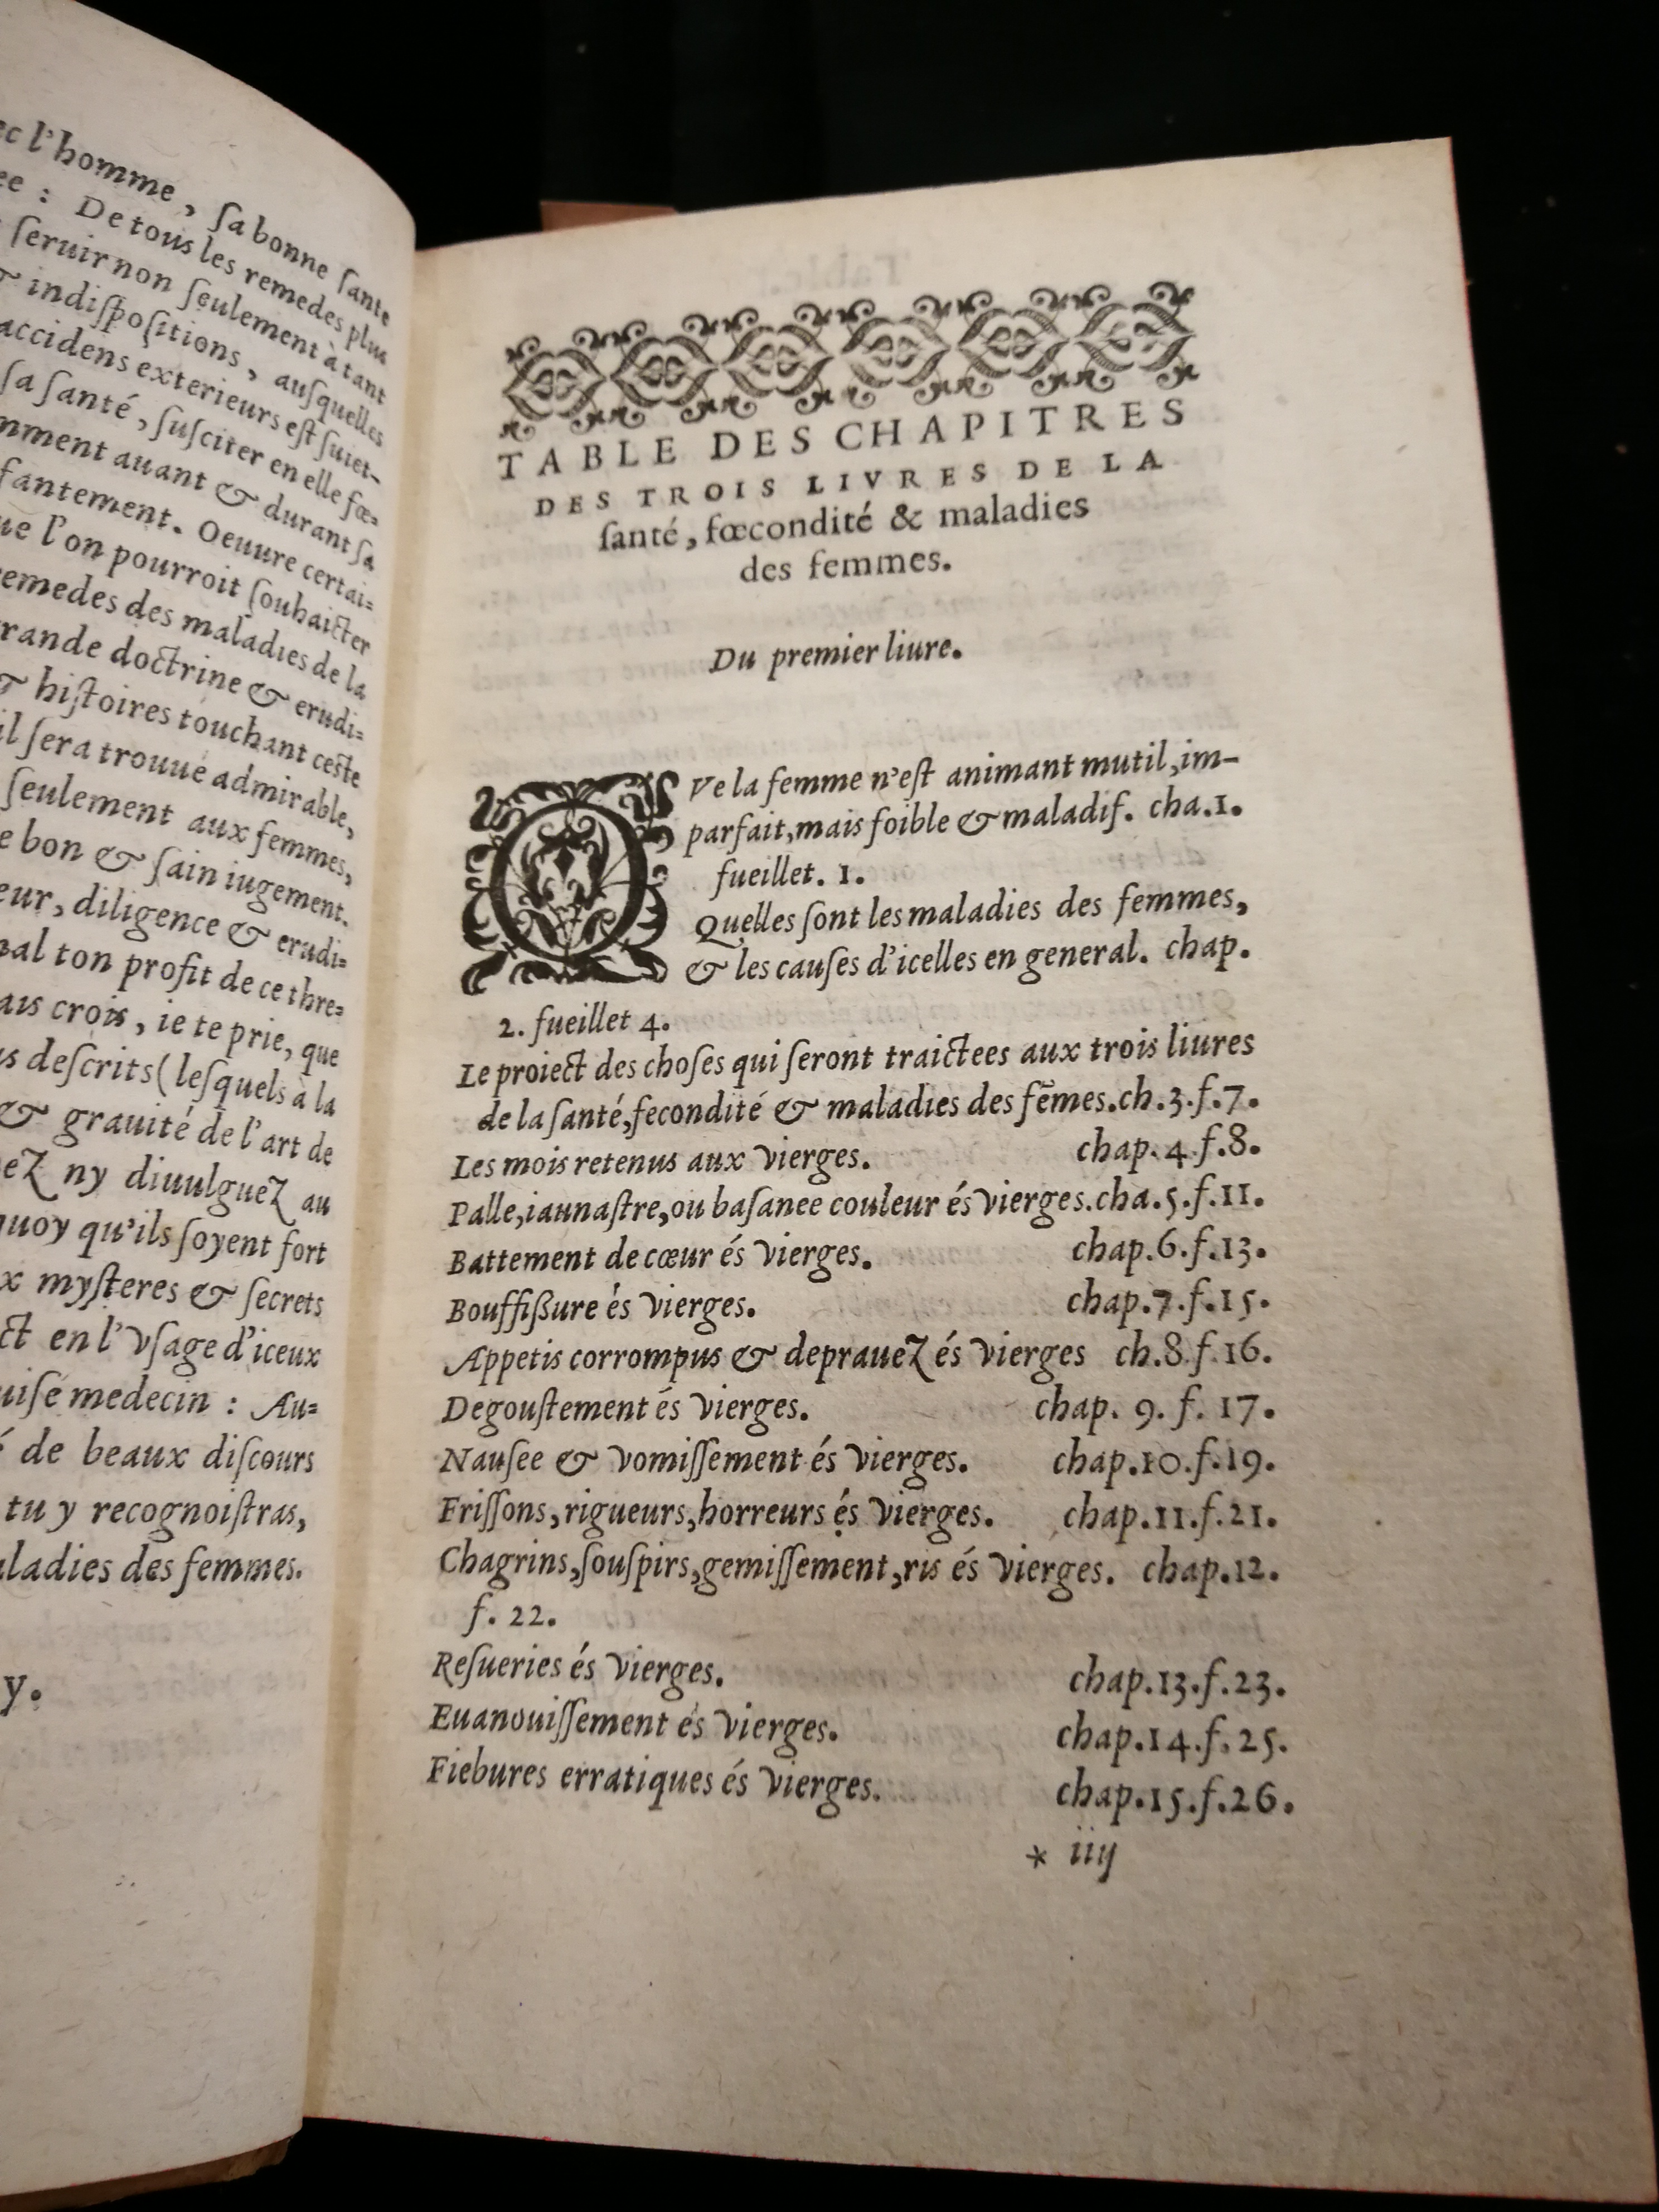 ec l'homme, ſa bonne ſante
ee : De tous les remedes plus
ſeruir non ſeulement à tant
& indiſpoſitions, auſquelles
accidens exterieurs eſt ſuiet-
ſa ſanté, ſuſciter en elle fœ-
mment auant & durant ſa
fantement. Oeuure certai-
ue l'on pourroit ſouhaicter
remedes des maladies de la
rande doctrine & erudi-
& hiſtoires touchant ceſte
il ſera trouué admirable,
ſeulement aux femmes,
e bon & ſain iugement.
eur, diligence & erudi-
nal ton profit de ce thre-
ais crois, ie te prie, que
us deſcrits (leſquels à la
& grauité de l'art de
nez ny diuulguez au
quoy qu'ils ſoyent fort
x myſteres & ſecrets
ct en l'vſage d'iceux
uiſé medecin : Au-
é de beaux diſcours
tu y recognoiſtras,
aladies des femmes.
y.
TABLE DES CHAPITRES
DES TROIS LIVRES DE LA
ſanté, fœcondité & maladies
des femmes.
Du premier liure.
QVe la femme n'eſt animant mutil, im-
parfait, mais foible & maladif. cha.1.
fueillet. 1.
Quelles ſont les maladies des femmes,
& les cauſes d'icelles en general. chap.
2. fueillet 4.
Le proiect des choſes qui ſeront traictees aux trois liures
de la ſanté, fecondité & maladies des fẽmes.ch.3.f.7.
Les mois retenus aux vierges. chap.4.f.8.
Palle, iaunaſtre, ou baſanee couleur és vierges.cha.5.f.11.
Battement de cœur és vierges. chap.6.f.13.
Bouffißure és vierges. chap.7.f.15.
Appetis corrompus & deprauez és vierges ch.8.f.16.
Degouſtement és vierges. chap. 9. f. 17.
Nauſee & vomiſſement és vierges. chap.10.f.19.
Friſſons, rigueurs, horreurs és vierges. chap.11.f.21.
Chagrins, ſouſpirs, gemiſſement, ris és vierges. chap.12.
f. 22.
Reſueries és vierges. chap.13.f.23.
Euanouiſſement és vierges. chap.14.f.25.
Fiebures erratiques és vierges. chap.15.f.26.
* iiij